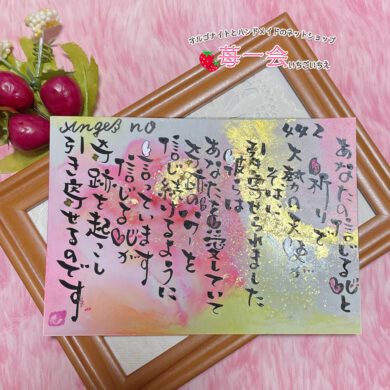 オルゴナイトとハンドメイドのネットショップ
苺一会
いちごいちえ
angel no
442
あなたの信じる心と
祈りで
大勢の天使が
そばに
引き寄せられました
彼らは
あなたを愛していて
パワーを
信じ続けるように
言っています
信じる心が
奇跡を起こし
引き寄せるのです